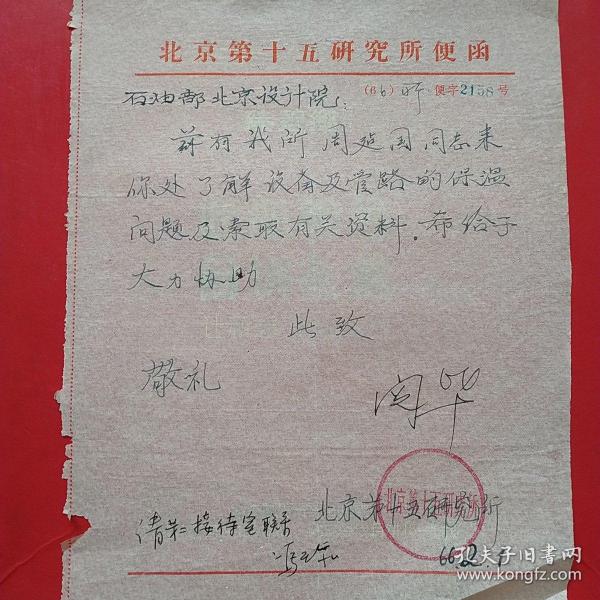 北京第十五研究所便函
石油部北京设计院: (66)研 便字2158号
兹有我所周延国同志来
你处了解设备及管路的保温
问题及索取有关资料。希给予
大力协助
此致
敬礼
北京第十五研究所
请第二接待室联系
孔夫子旧书网
www.kongfz.com